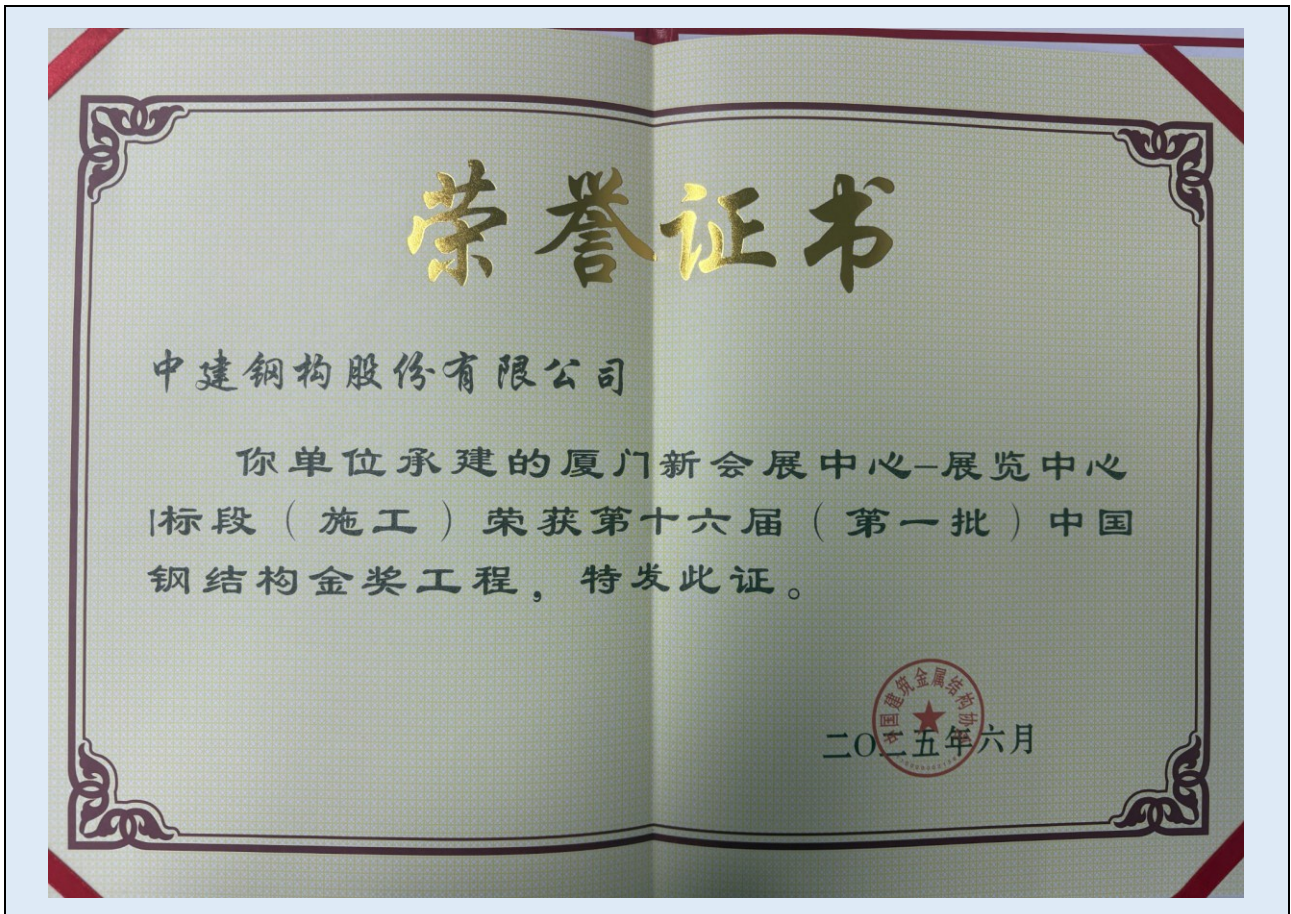 荣誉证书
中建钢构股份有限公司
你单位承建的厦门新会展中心-展览中心
I标段（施工）荣获第十六届（第一批）中国
钢结构金奖工程，特发此证。
中国建筑金属结构协会
二〇二五年六月